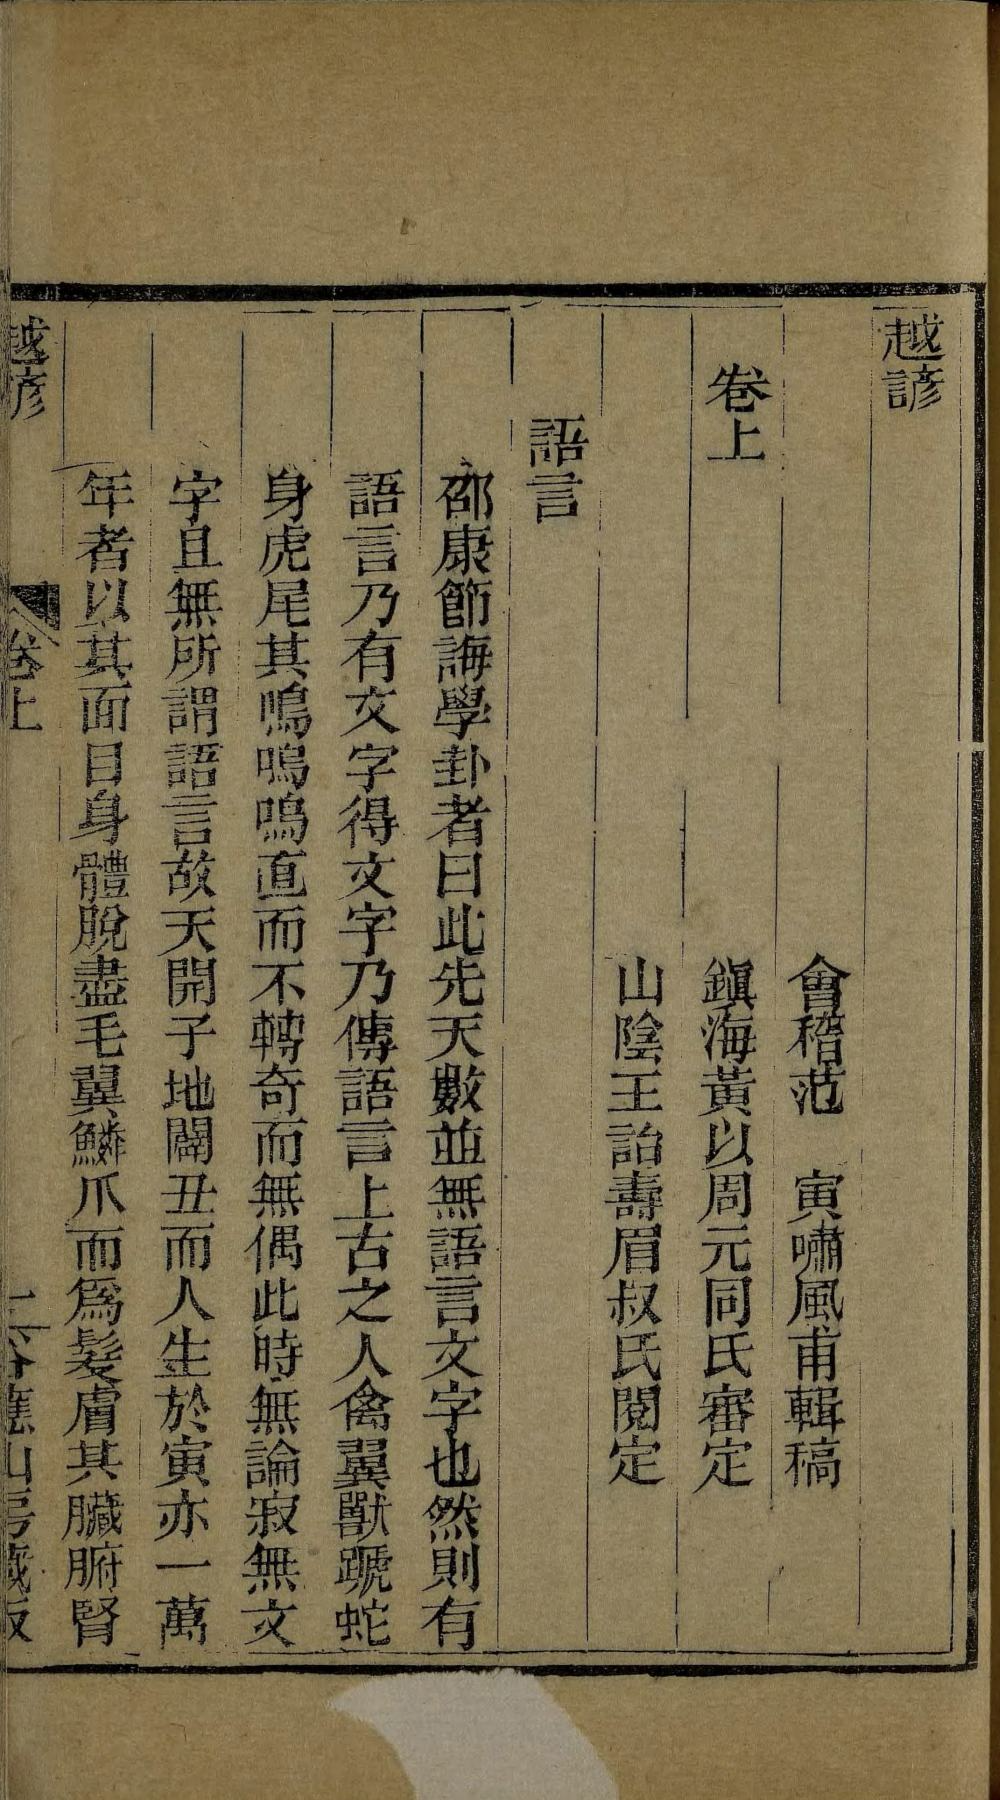 越諺
會稽范　寅嘯風甫輯稿
卷上
鎭海黃以周元同氏審定
山陰王詒壽眉叔氏閱定
語言
邵康節誨學卦者曰此先天數並無語言文字也然則有
語言乃有文字得文字乃傳語言上古之人禽翼獸蹏蛇
身虎尾其鳴嗚嗚直而不轉奇而無偶此時無論寂無文
字且無所謂語言故天開子地闢丑而人生於寅亦一萬
年者以其面目身體脫盡毛翼鱗爪而爲髮膚其臟腑腎
越諺
卷上